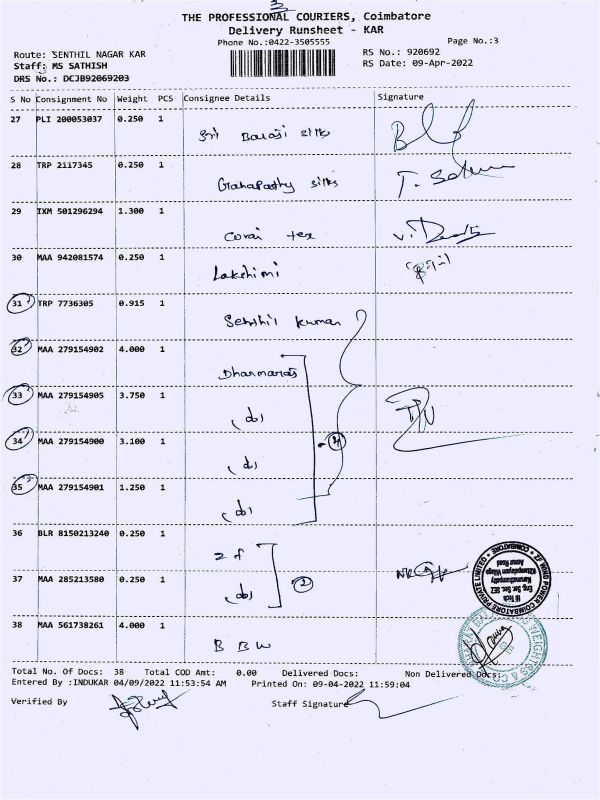 3
THE PROFESSIONAL COURIERS, Coimbatore
Delivery Runsheet - KAR
Phone No.:0422-3505555
Page No.:3
Route: SENTHIL NAGAR KAR
RS No.: 920692
Staff: MS SATHISH
RS Date: 09-Apr-2022
DRS No.: DCJB92069203
S No Consignment No Weight PCS Consignee Details Signature
27 PLI 200053037 0.250 1 Sri Balaji silks
28 TRP 2117345 0.250 1 Ganapathy silks
29 IXM 501296294 1.300 1 Covai tex
30 MAA 942081574 0.250 1 Lakshimi
31 TRP 7736305 0.915 1 Senthil Kumar
32 MAA 279154902 4.000 1 Dharmaraj
33 MAA 279154905 3.750 1 (do)
34 MAA 279154900 3.100 1 (do)
35 MAA 279154901 1.250 1 (do)
36 BLR 8150213240 0.250 1 Z f
37 MAA 285213580 0.250 1 (do) 2
38 MAA 561738261 4.000 1 B B W
ZF WIND POWER COIMBATORE PRIVATE LIMITED
COIMBATORE
Hi Tech
Eng. Ser. SEZ
Karumathampatty
Annur Road
Total No. Of Docs: 38 Total COD Amt: 0.00 Delivered Docs: Non Delivered Docs:
Entered By :INDUKAR 04/09/2022 11:53:54 AM Printed On: 09-04-2022 11:59:04
Verified By
Staff Signature